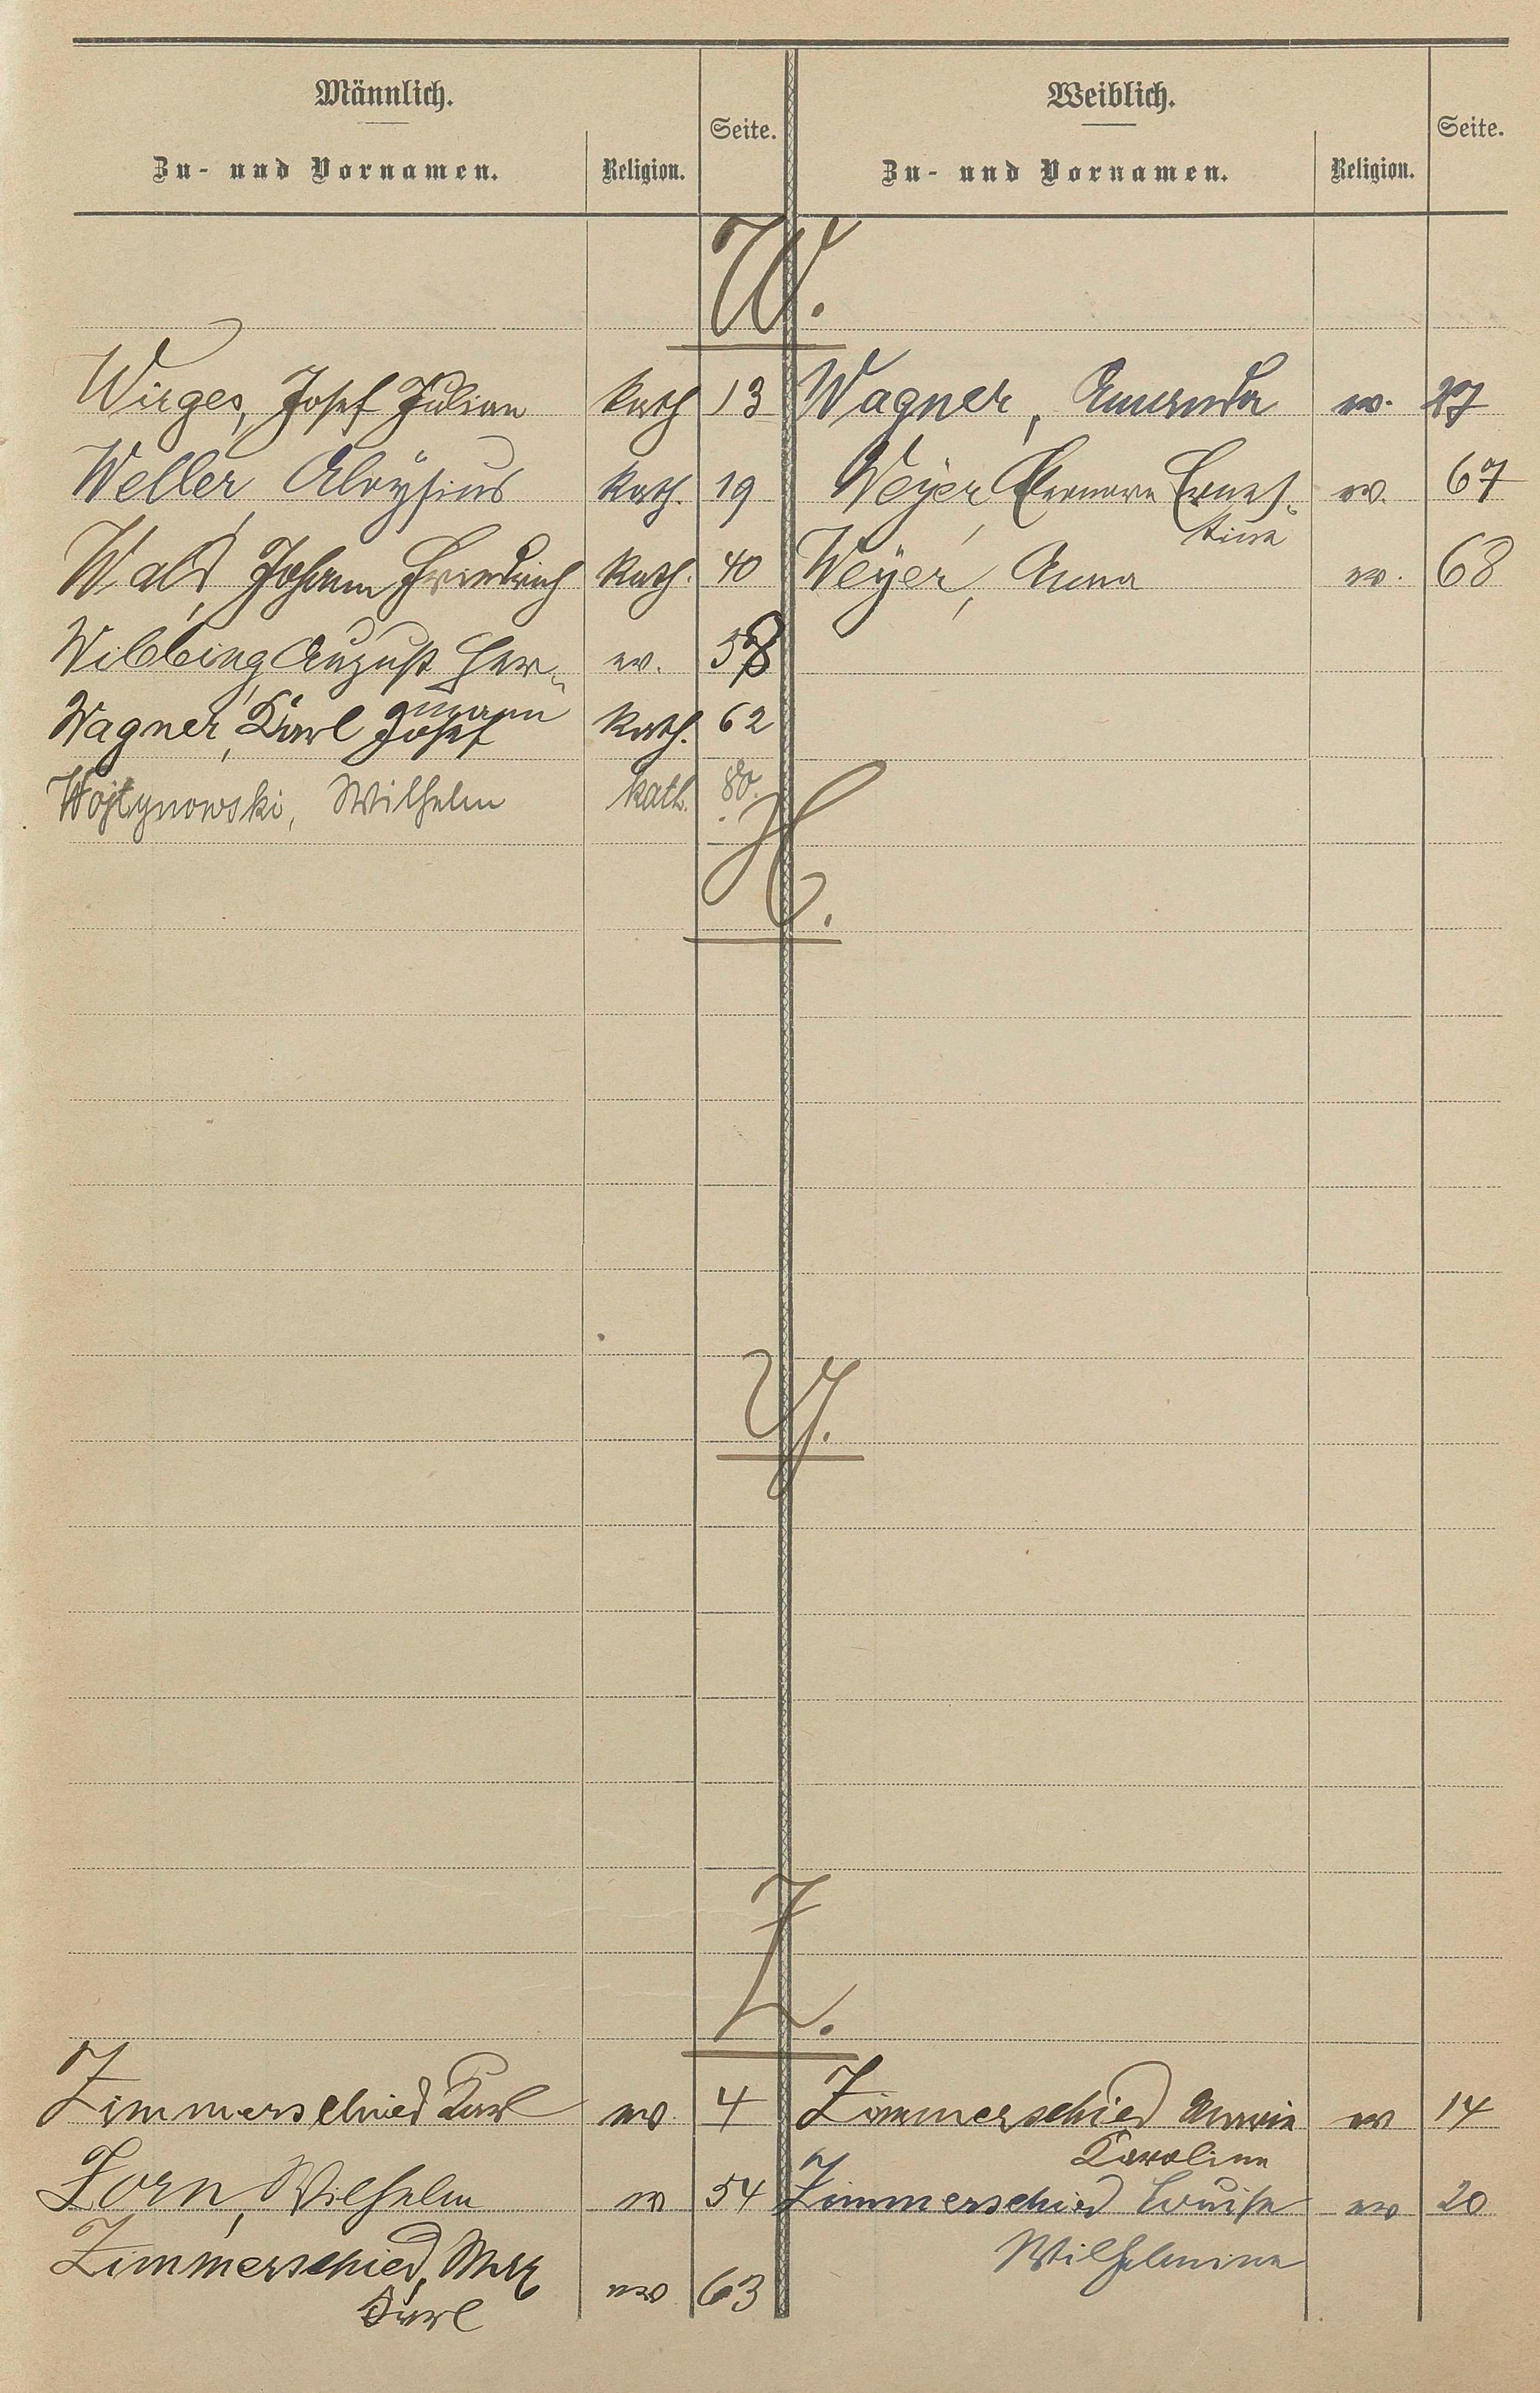 Männlich.
Zu- und Vornamen.
Religion.
Seite.
Weiblich.
Zu- und Vornamen.
Religion.
Seite.
W.
Wirges, Josef Julian kath 13
Wagner, Amanda ev. 27
Weller, Aloÿsius kath. 19
Weÿer, Ernes-
tina ev. 67
Wald, Johann Friedrich kath. 40
Weÿer, Anna ev. 68
Wibbing, August Her-
mann ev. 58
Wagner, Karl Josef kath. 62
Wojtynowski, Wilhelm kath. 80.
X.
Y.
Z.
Zimmerschied Karl ev 4
Zimmerschied
Karoline ev 14
Zorn, Wilhelm ev 54
Zimmerschied Louise
Wilhelmine ev 20
Zimmerschied, Max
Karl ev 63